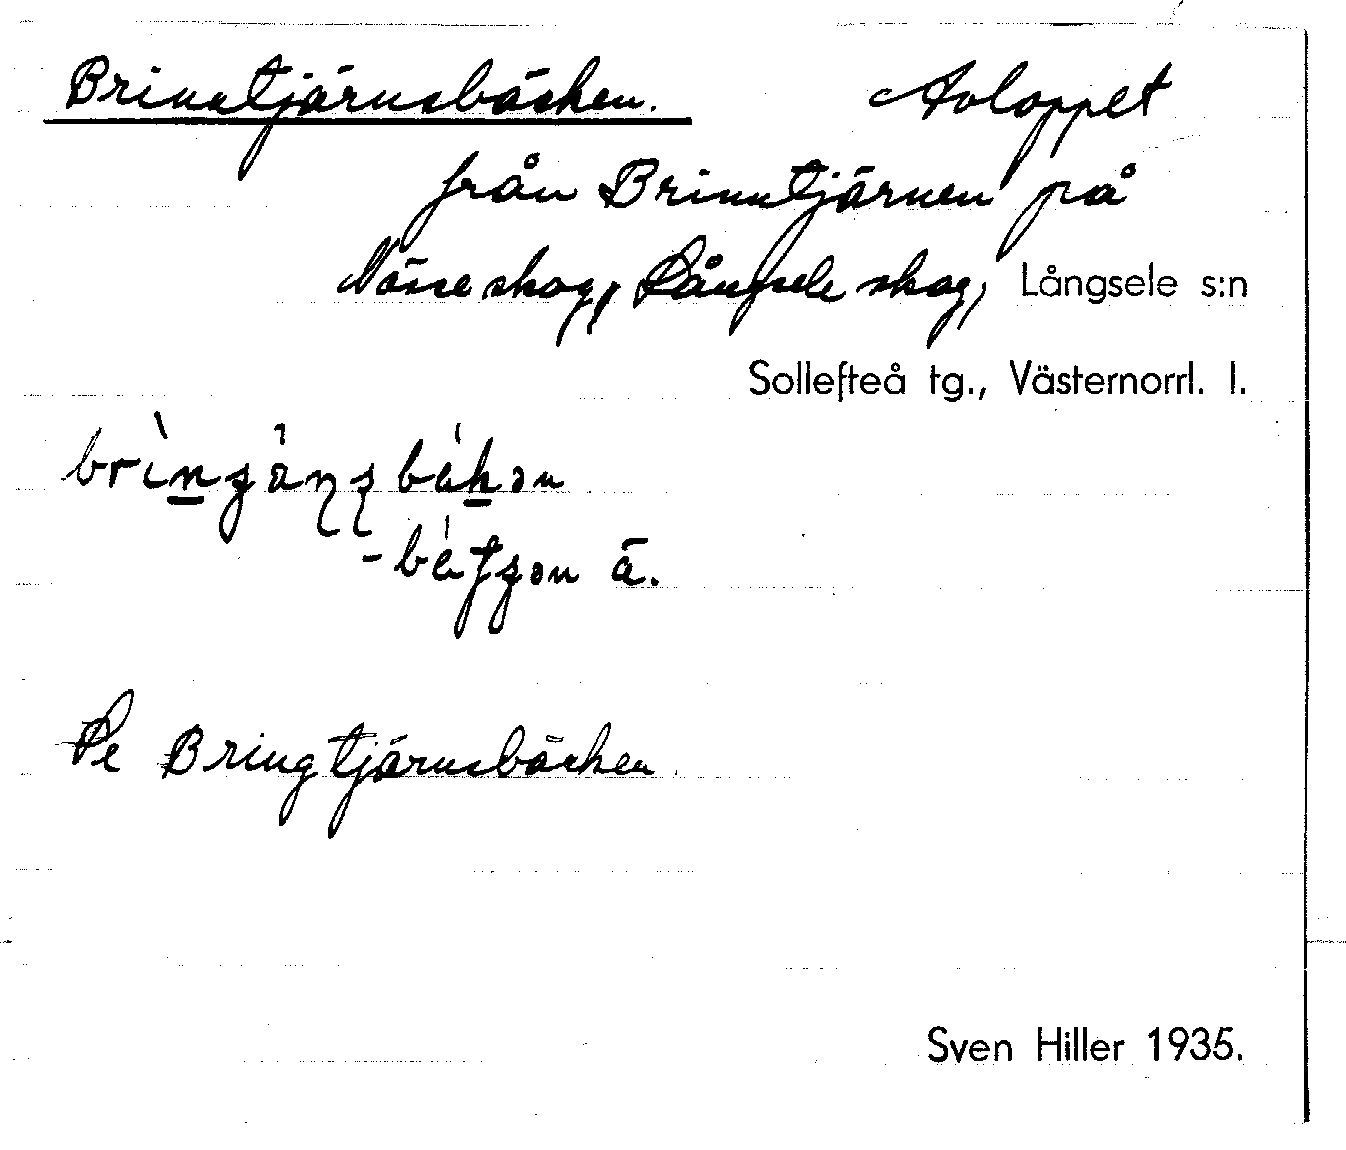 Brinntjärnsbäcken. Avloppet
från Brinntjärnen på
Näsne skog, Långsele skog, Långsele s:n
Sollefteå tg., Västernorrl. l.
ä.
Pe Bringtjärnsbäcken
Sven Hiller 1935.